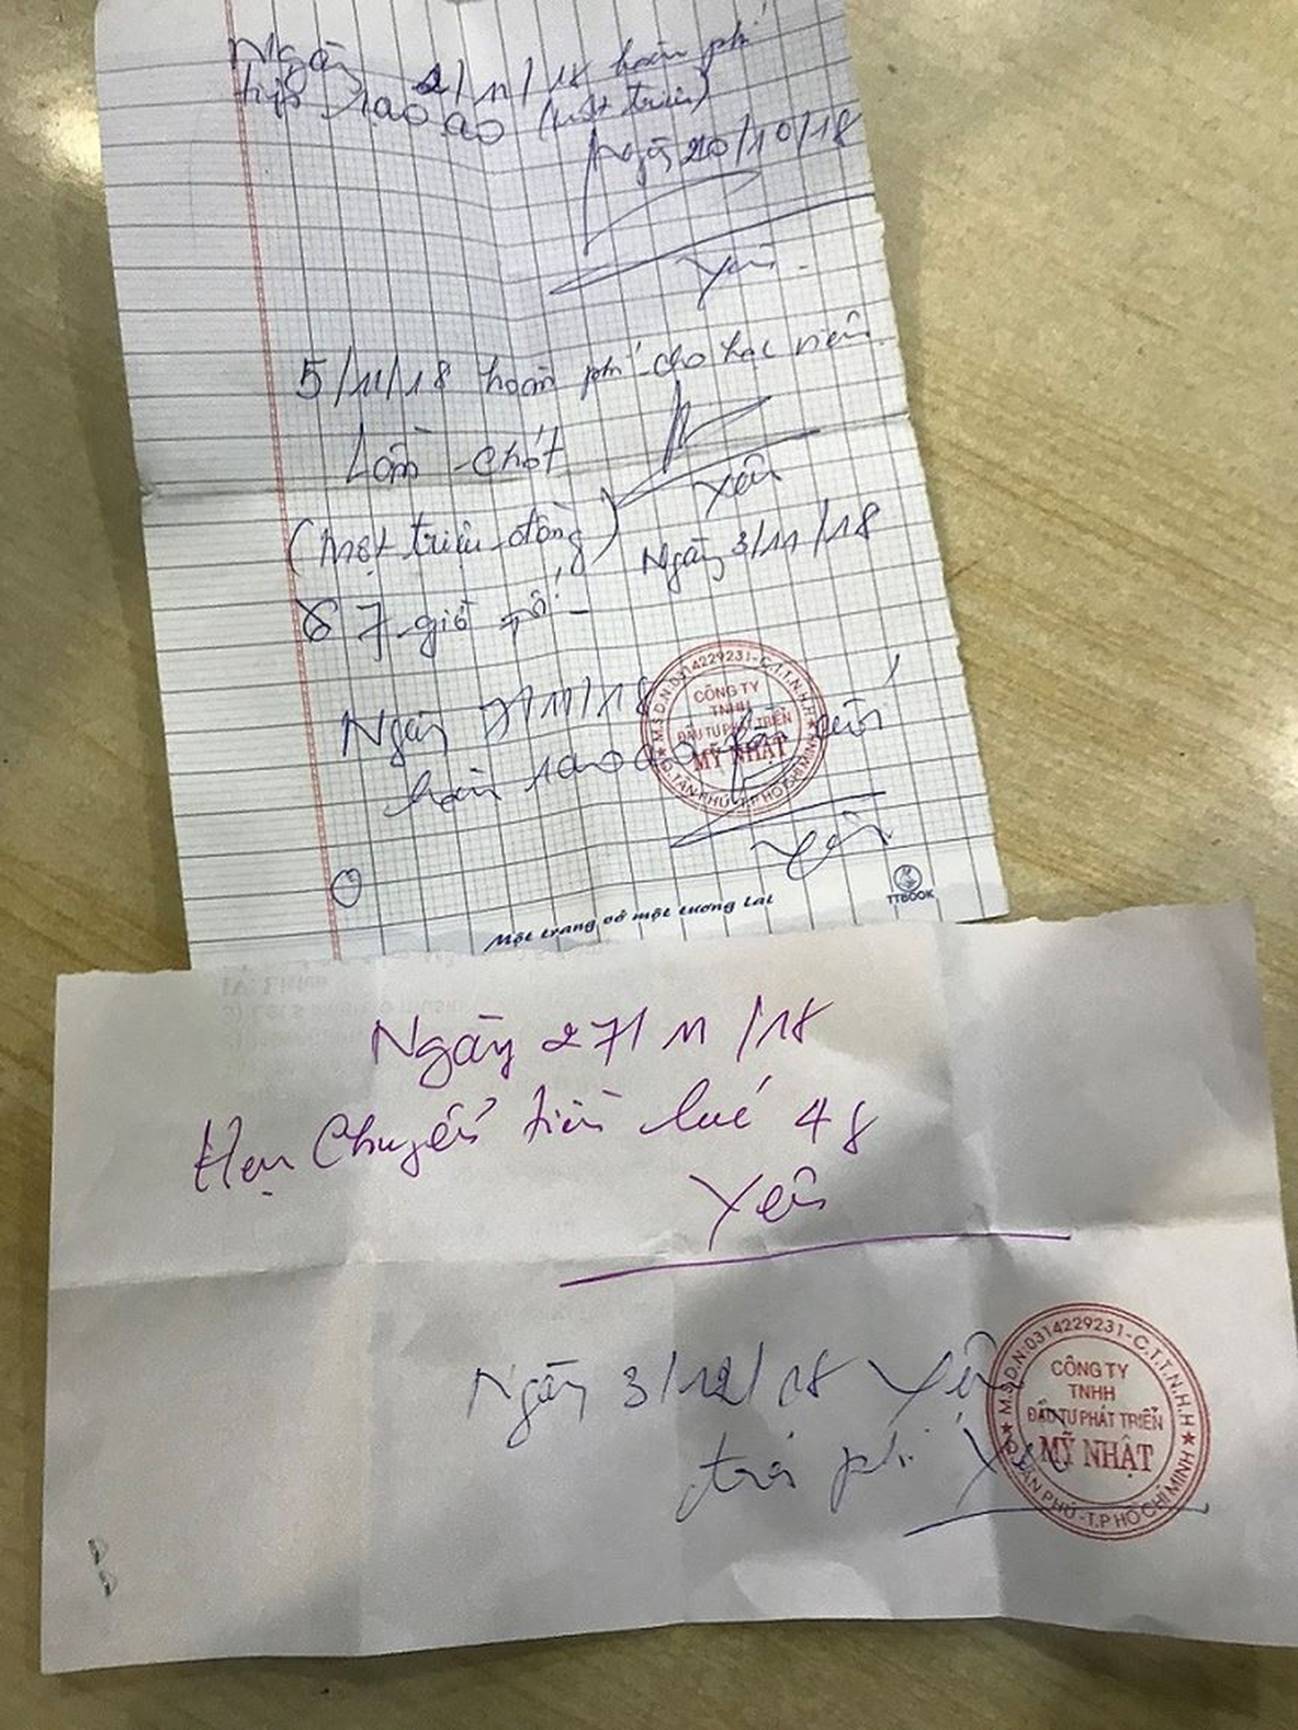 Ngày 2/11/18 hoàn phí
tiếp (một triệu)
Ngày 20/10/18
Yên
5/11/18 hoàn phí cho học viên
Lần chót
Yên
(Một triệu đồng)
Ngày 3/11/18
7 giờ tối
Ngày 7/11/18
hoàn lần cuối
Yên
M.S.D.N:0314229231-C.T.T.N.H.H
CÔNG TY
TNHH
ĐẦU TƯ PHÁT TRIỂN
MỸ NHẬT
Q.TÂN PHÚ-T.P HỒ CHÍ MINH
Một trang vở một tương lai
TTBOOK
Ngày 27/11/18
Hẹn chuyển tiền lúc 4g
Yên
Ngày 3/12/18 Yên
trả phí Yên
M.S.D.N:0314229231-C.T.T.N.H.H
CÔNG TY
TNHH
ĐẦU TƯ PHÁT TRIỂN
MỸ NHẬT
Q.TÂN PHÚ-T.P HỒ CHÍ MINH